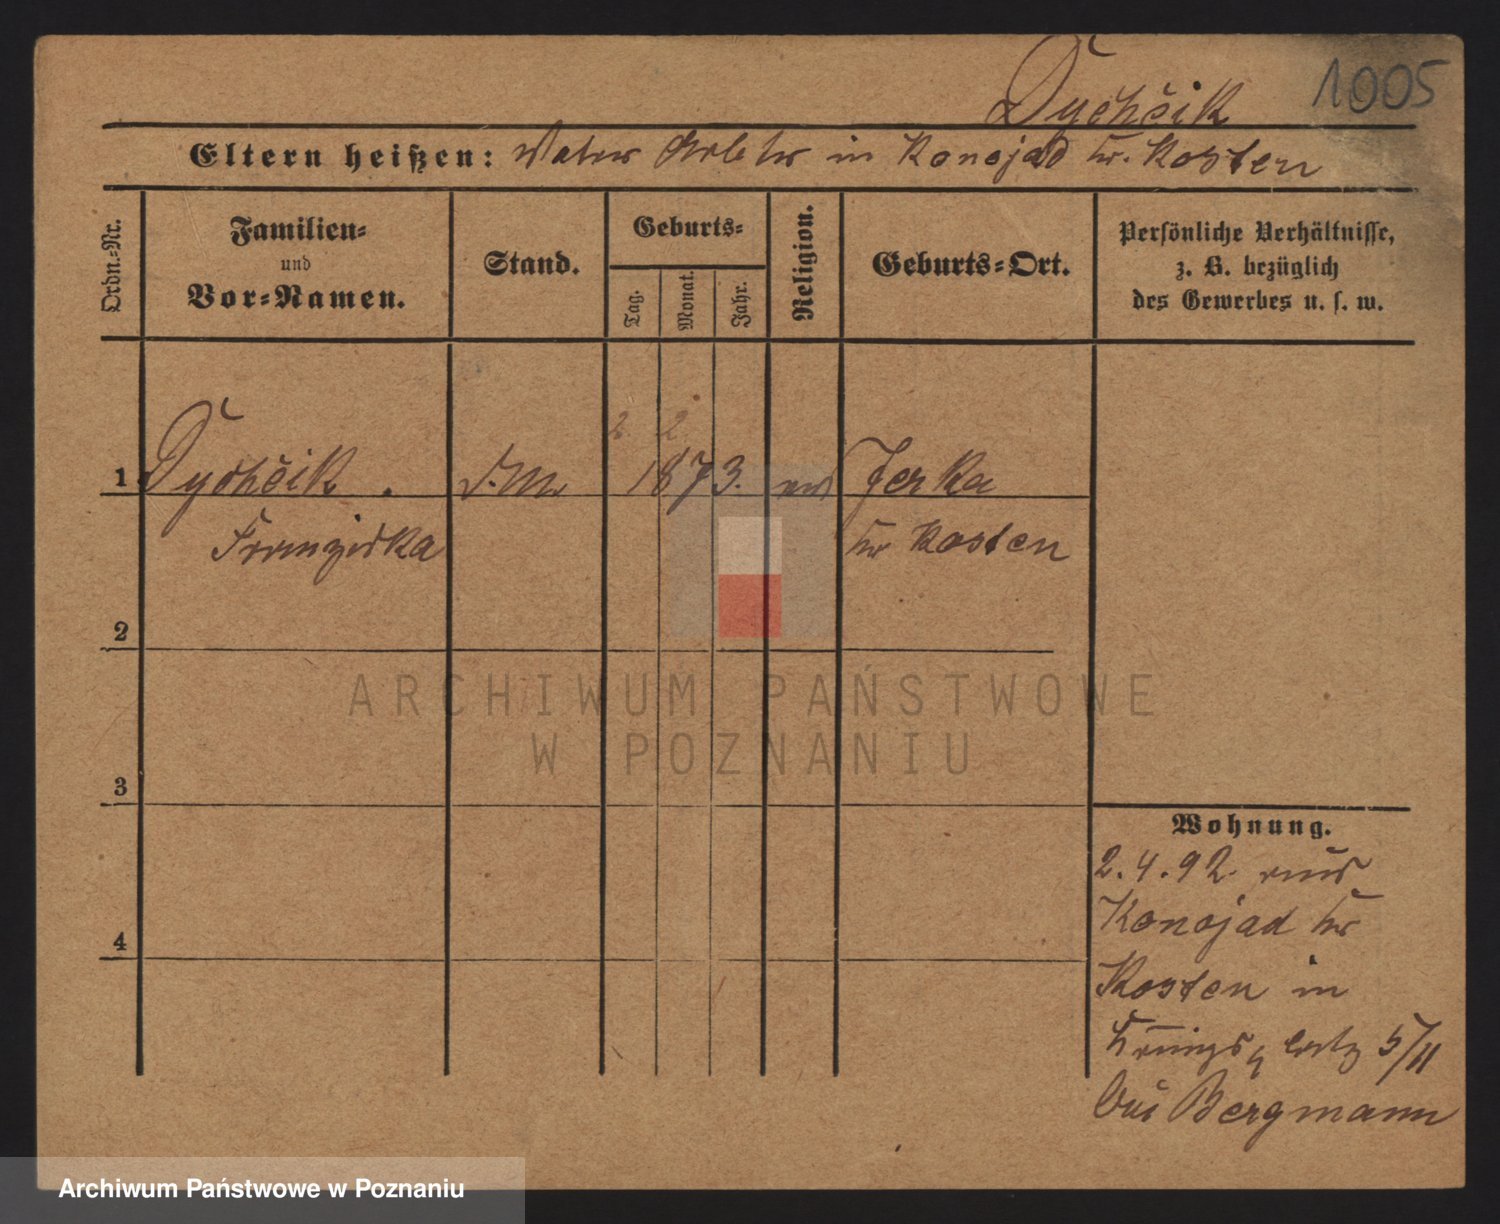 1005
Dychčik
Eltern heißen: Vater Arbtr in Konojad Kr. Kosten
Ordn.-Nr.
Familien-
und
Vor-Namen.
Stand.
Geburts-
Tag.
Monat.
Jahr.
Religion.
Geburts-Ort.
Persönliche Verhältnisse,
z. B. bezüglich
des Gewerbes u. s. w.
2. 2.
1 Dychčik D.M. 1873. Jerka
Franziska Kr Kosten
2
3
4
Wohnung.
2.4.92. aus
Konojad Kr
Kosten in
5/11
bei Bergmann
ARCHIWUM PAŃSTWOWE
W POZNANIU
Archiwum Państwowe w Poznaniu